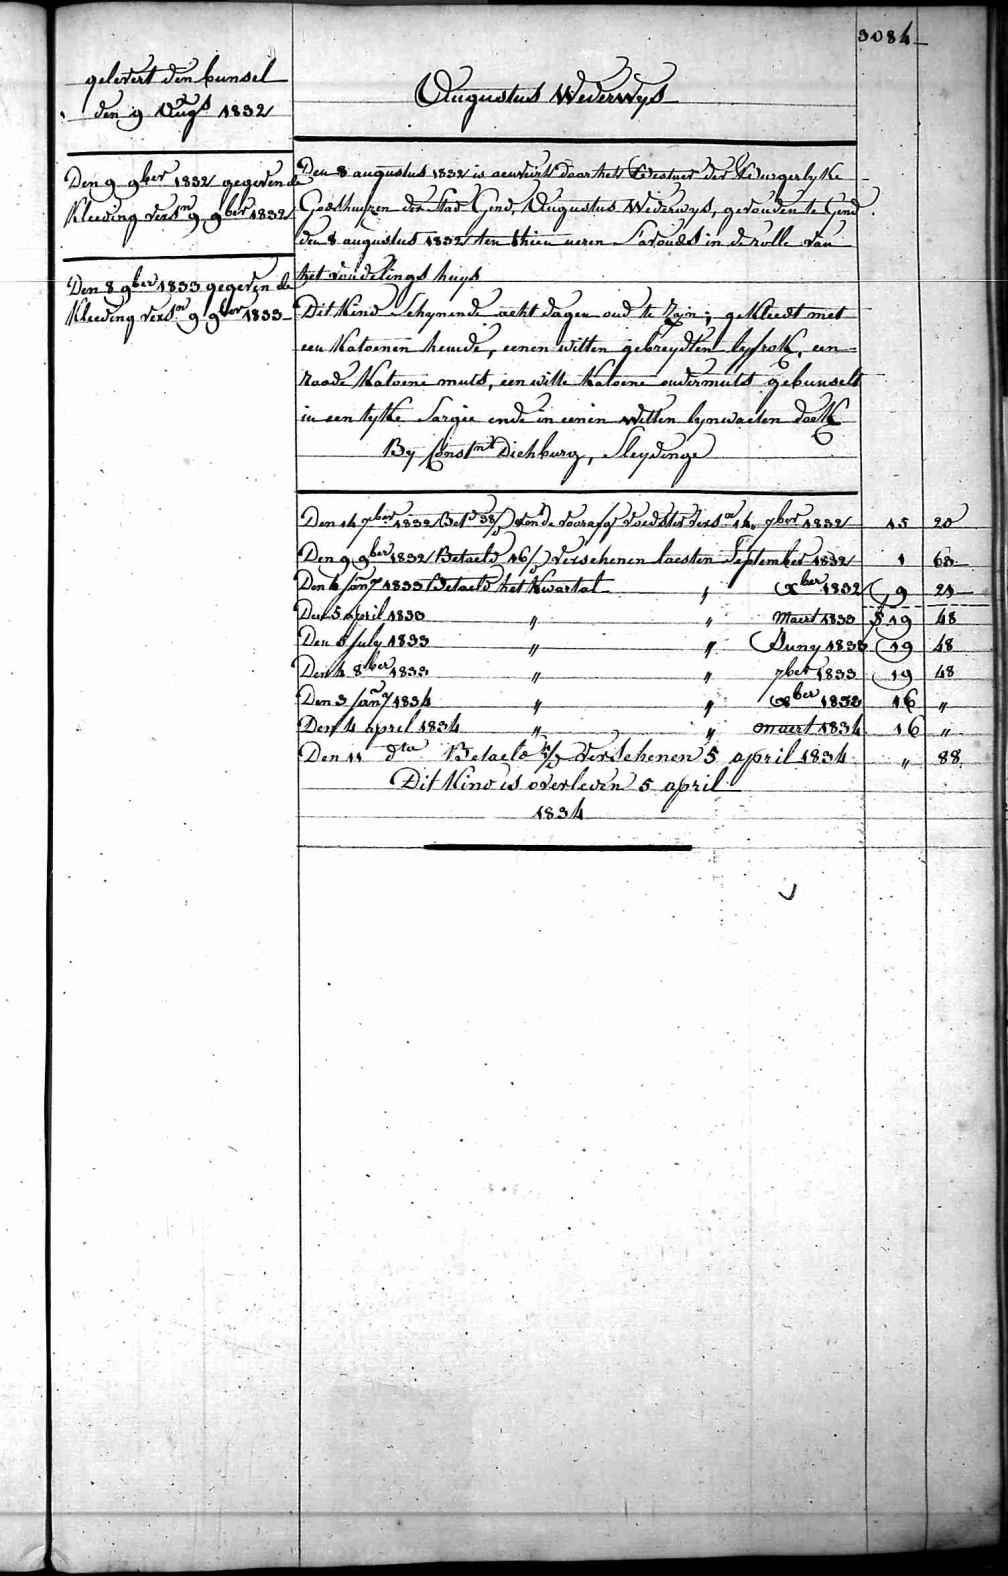 3084
gelevert den bunsel
den 9 Augs 1832
Augustus Wederwys
Den 9 9ber 1832 gegeven de
Kleeding versn 9 9ber 1832
Den 8 9ber 1833 gegeven de
Kleeding versn 9 9ber 1833
Den 8 augustus 1832 is aenveird door het Bestuer der Burgerlyke
Godshuyzen der Stad Gend, Augustus Wederwys, gevonden te Gend
den 8 augustus 1832 ten thien ueren s'avonds in de rolle van
het vondelings huys
Dit Kind schynende acht dagen oud te zyn; gekleedt met
een Katoenen hemde, eenen witten gebreydten lyfrok, een
roode Katoene muts, een witte Katoene ondermuts gebunselt
in een tyke Sargie ende in eenen witten lynwaeten doek
By Constnt Dichburg, Sleydinge
Den 14 7ber 1832 Betd 38/D van de voorafg voedster versn 14 7ber 1832 15 20
Den 9 9ber 1832 Betaeld 16/D verschenen laesten September 1832 1 63
Den 6 Jany 1833 Betaeld het Kwartal " Xber 1832 9 29
Den 5 april 1833 " " Maert 1833 19 48
Den 5 July 1833 " " Juny 1833 19 48
Den 4 8ber 1833 " " 7ber 1833 19 48
Den 3 Jany 1834 " " Xber 1833 16 "
Den 4 april 1834 " " maert 1834 16 "
Den 11 dto Betaeld verschenen 5 april 1834 " 88
Dit Kind is overleden 5 april
1834